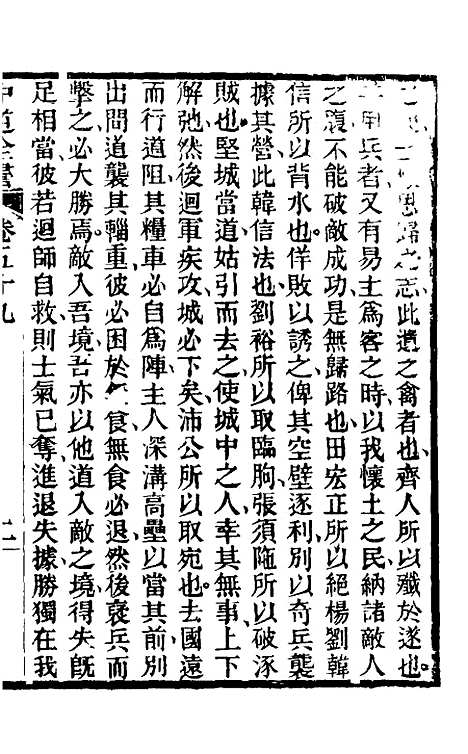 思歸之志此遺之禽者也齊人所以殲於遂也
甲兵者又有易主爲客之時以我懷土之民納諸敵人
之腹不能破敵成功是無歸路也田宏正所以絕楊劉韓
信所以背水也佯敗以誘之俾其空壁逐利別以奇兵襲
據其營此韓信法也劉裕所以取臨朐張須陁所以破涿
賊也堅城當道姑引而去之使城中之人幸其無事上下
解弛然後迴軍疾攻城必下矣沛公所以取宛也去國遠
而行道阻其糧車必自爲陣主人深溝高壘以當其前別
出間道襲其輜重彼必困於食無食必退然後裒兵而
擊之必大勝焉敵入吾境吾亦以他道入敵之境得失旣
足相當彼若迴師自救則士氣已奪進退失據勝獨在我
全書 卷五十九